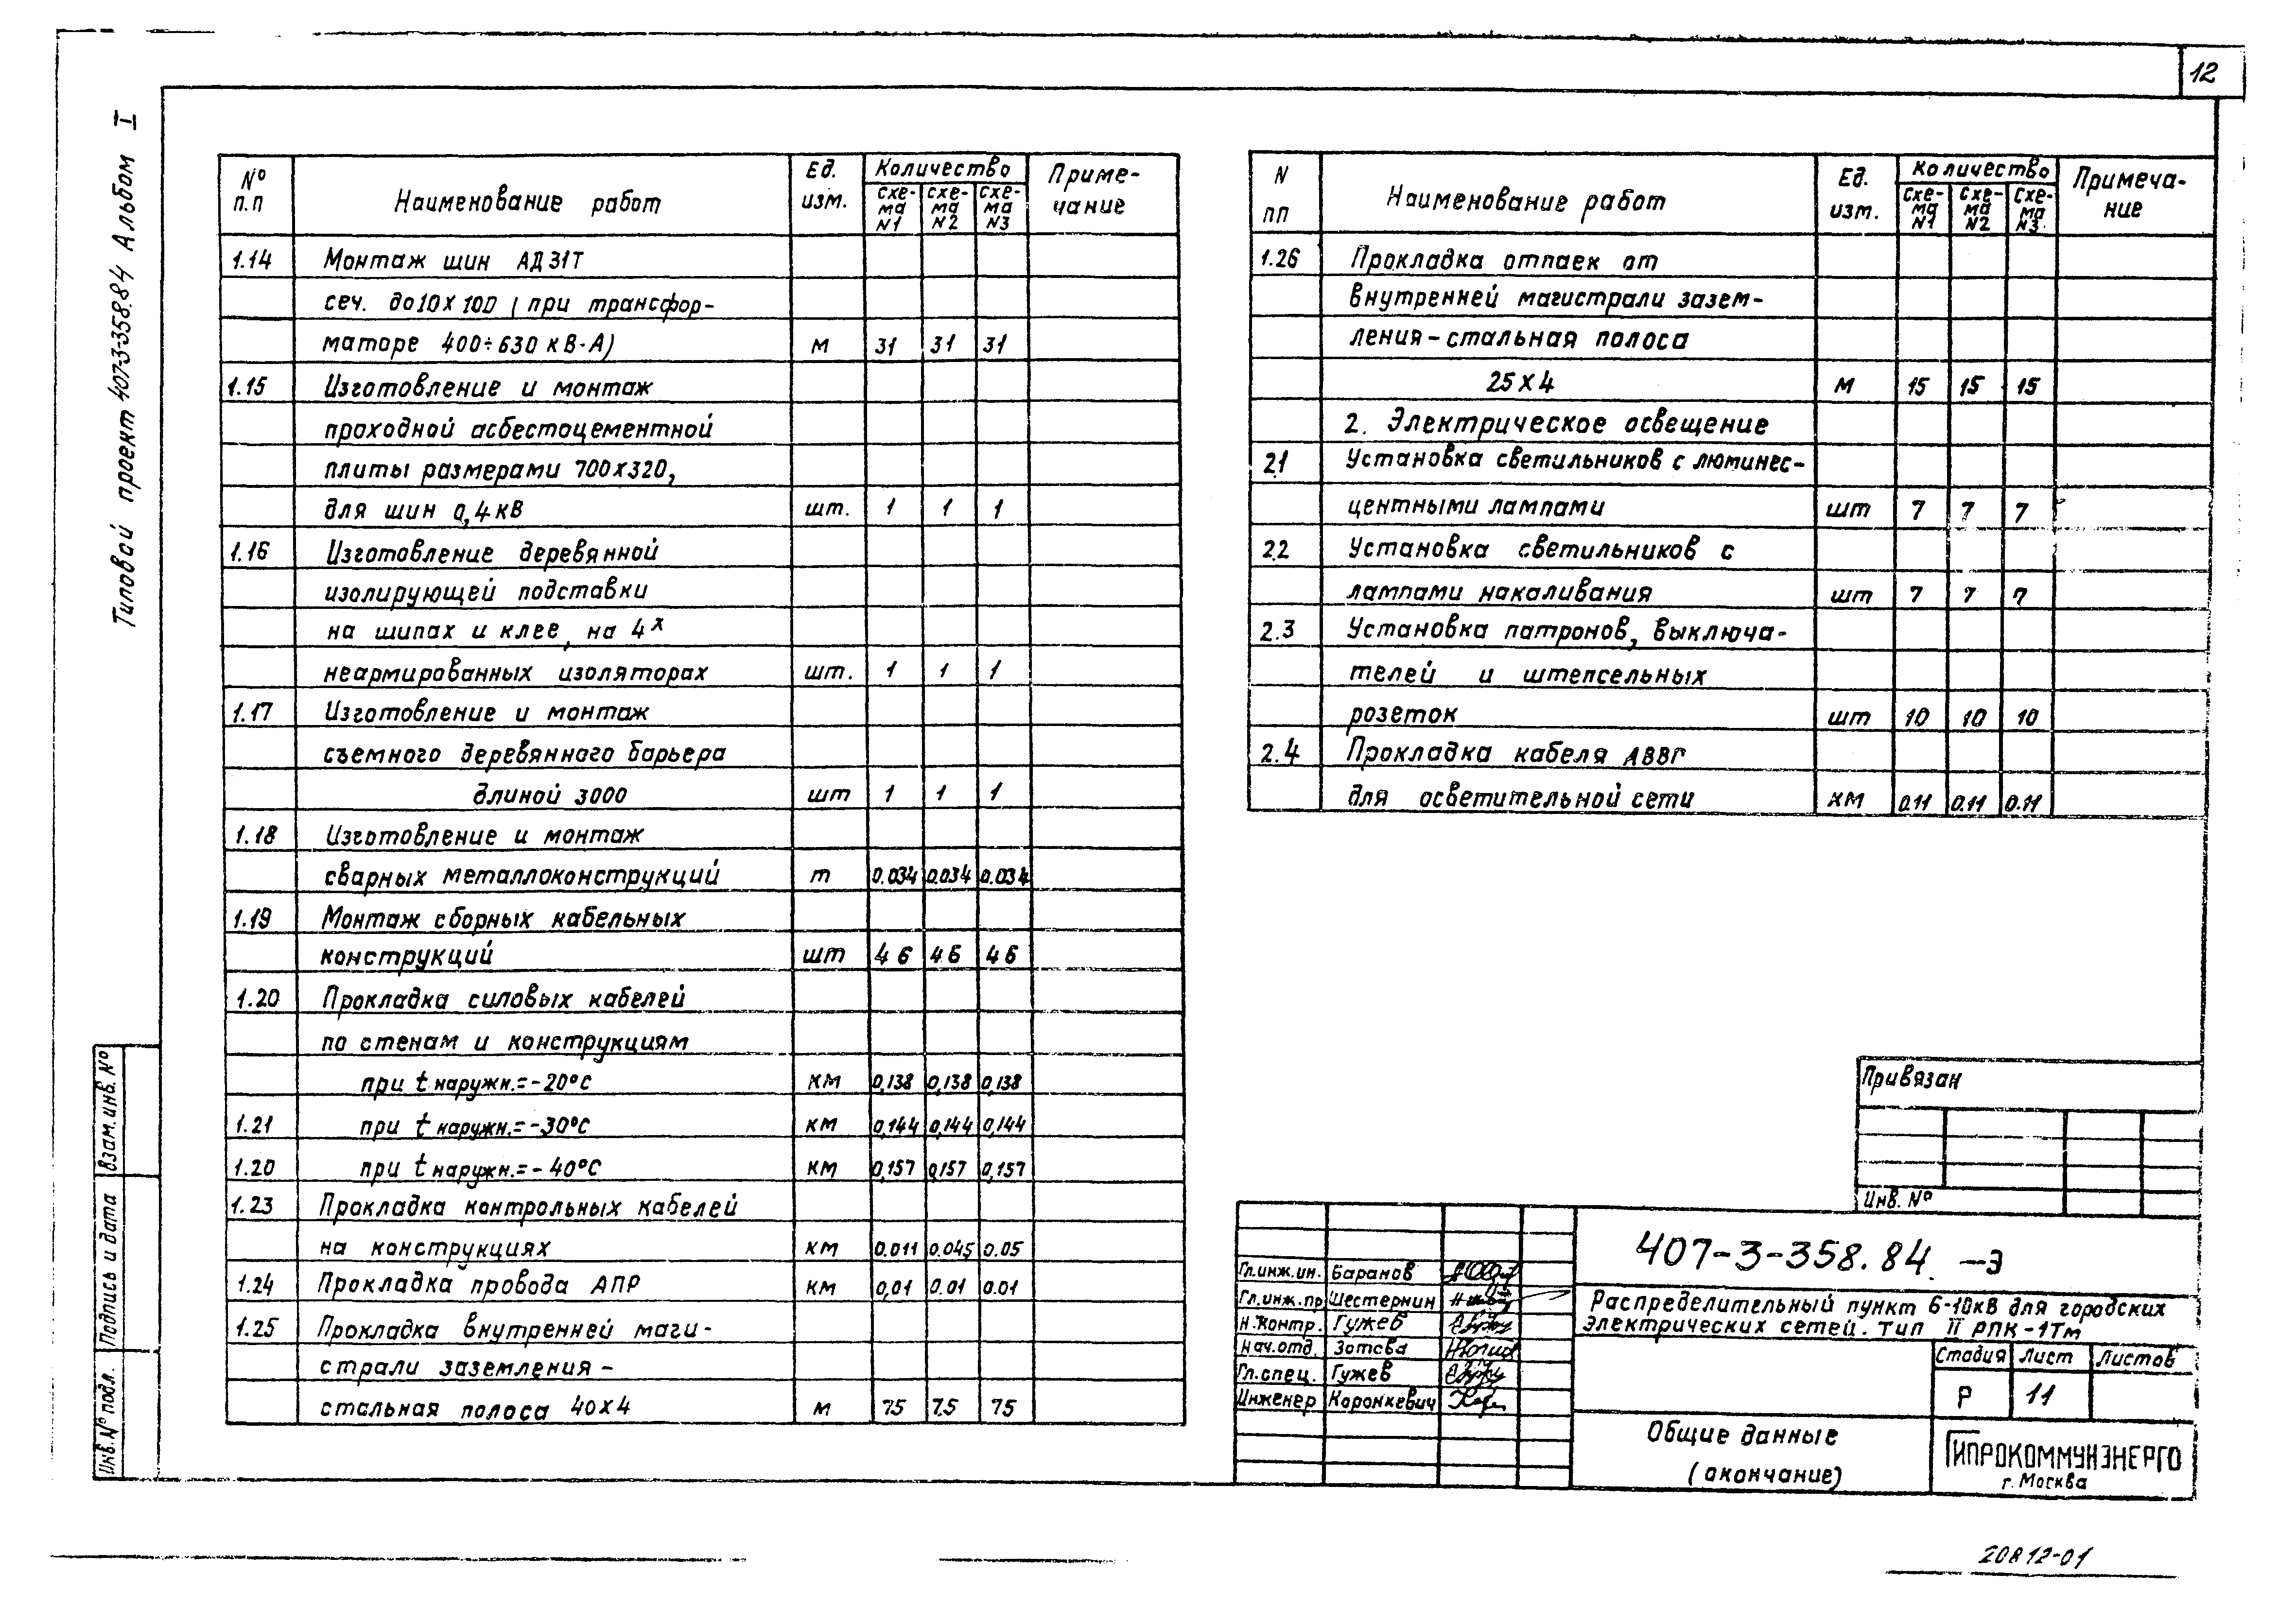 12
Типовой проект 407-3-358.84 Альбом I
№ п.п
Наименование работ
Ед. изм.
Количество
Схема N1
Схема N2
Схема N3
Примечание
1.14 Монтаж шин АД31Т
сеч. до 10х100 (при трансфор-
маторе 400÷630 кВ·А) м 31 31 31
1.15 Изготовление и монтаж
проходной асбестоцементной
плиты размерами 700х320,
для шин 0,4кВ шт. 1 1 1
1.16 Изготовление деревянной
изолирующей подставки
на шипах и клее, на 4х
неармированных изоляторах шт. 1 1 1
1.17 Изготовление и монтаж
съемного деревянного барьера
длиной 3000 шт 1 1 1
1.18 Изготовление и монтаж
сварных металлоконструкций т 0.034 0.034 0.034
1.19 Монтаж сборных кабельных
конструкций шт 46 46 46
1.20 Прокладка силовых кабелей
по стенам и конструкциям
при t наружн.=-20°С км 0,138 0,138 0,138
1.21 при t наружн.=-30°С км 0,144 0,144 0,144
1.20 при t наружн.=-40°С км 0,157 0,157 0,157
1.23 Прокладка контрольных кабелей
на конструкциях км 0.011 0.045 0.05
1.24 Прокладка провода АПР км 0,01 0.01 0.01
1.25 Прокладка внутренней маги-
страли заземления-
стальная полоса 40х4 м 75 75 75
N пп
Наименование работ
Ед. изм.
Количество
Схема N1
Схема N2
Схема N3
Примечание
1.26 Прокладка отпаек от
внутренней магистрали зазем-
ления-стальная полоса
25х4 м 15 15 15
2. Электрическое освещение
2.1 Установка светильников с люминес-
центными лампами шт 7 7 7
2.2 Установка светильников с
лампами накаливания шт 7 7 7
2.3 Установка патронов, выключа-
телей и штепсельных
розеток шт 10 10 10
2.4 Прокладка кабеля АВВГ
для осветительной сети км 0.11 0.11 0.11
Привязан
Инв. №
407-3-358.84 -Э
Гл.инж.ин. Баранов
Гл.инж.пр Шестернин
Н.контр. Гужев
Нач.отд. Зотова
Гл.спец. Гужев
Инженер Коронкевич
Распределительный пункт 6-10кВ для городских
электрических сетей. Тип II РПК-1Тм
Стадия Лист Листов
Р 11
Общие данные
(окончание)
ГИПРОКОММУНЭНЕРГО
г. Москва
Инв.№ подл. Подпись и дата Взам.инв.№
20812-01